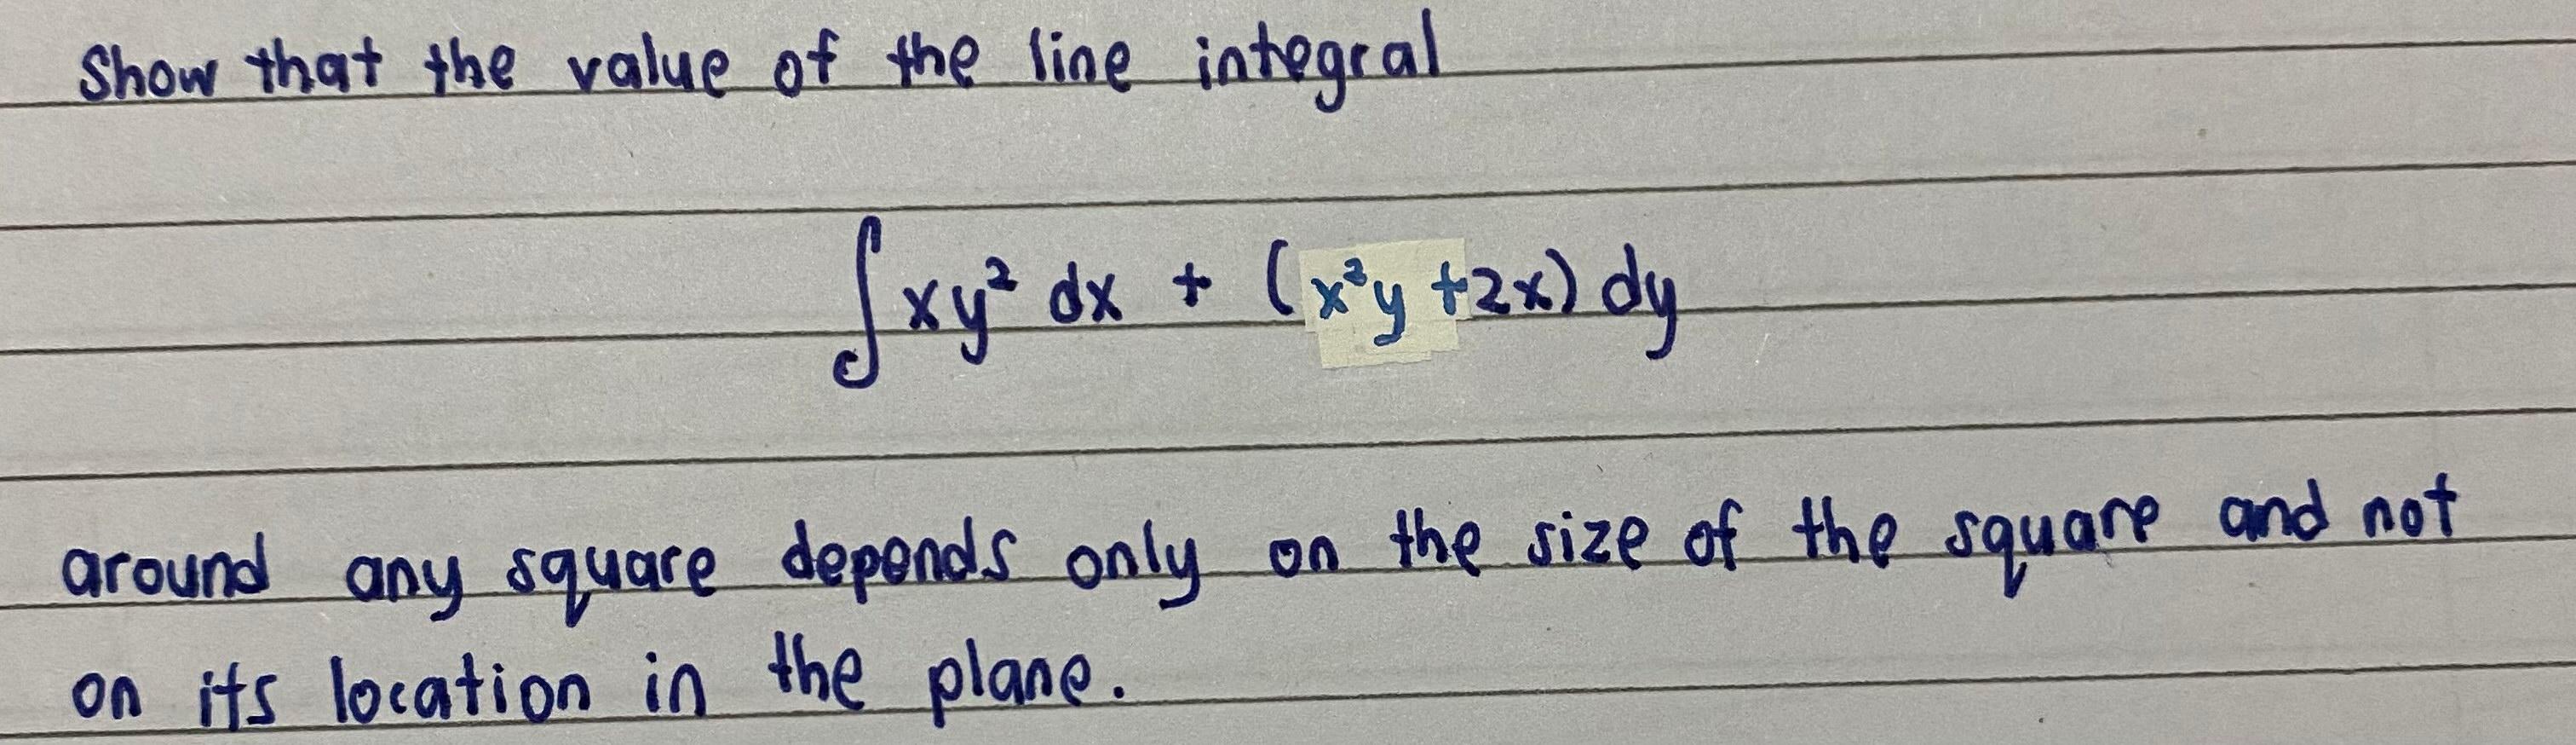 Show that the value of the line integral
∫xy² dx + (x²y +2x) dy
around any square depends only on the size of the square and not
on its location in the plane.